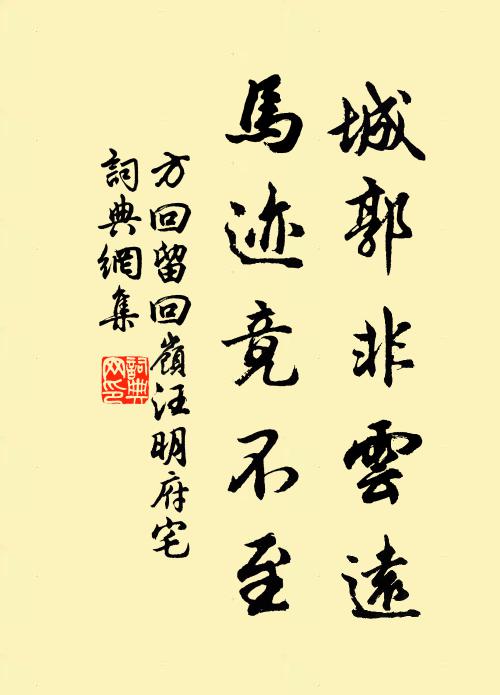 城郭非雲遠
馬迹竟不至
方回留回嶺汪明府宅
詞典網集
詞典网印